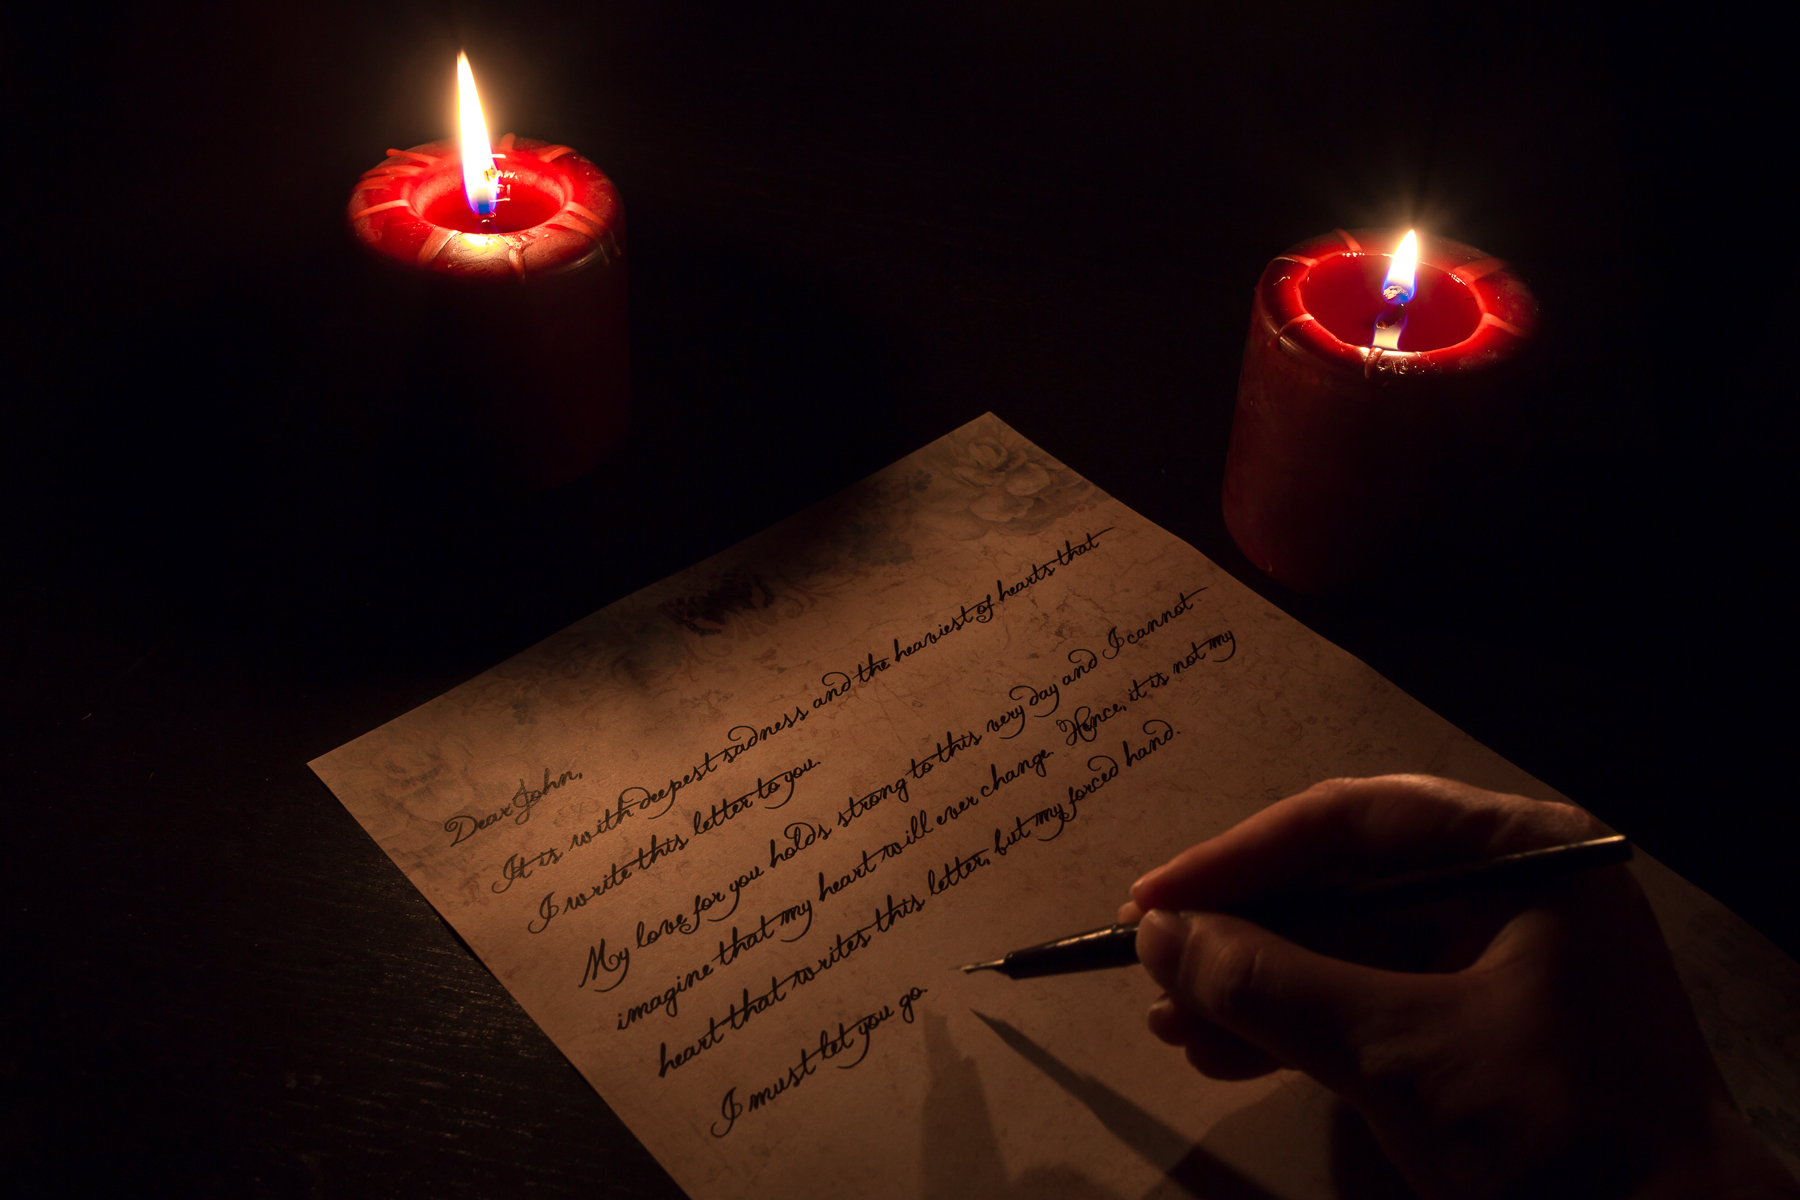 Dear John,
It is with deepest sadness and the heaviest of hearts that
I write this letter to you.
My love for you holds strong to this very day and I cannot
imagine that my heart will ever change. Hence, it is not my
heart that writes this letter, but my forced hand.
I must let you go.